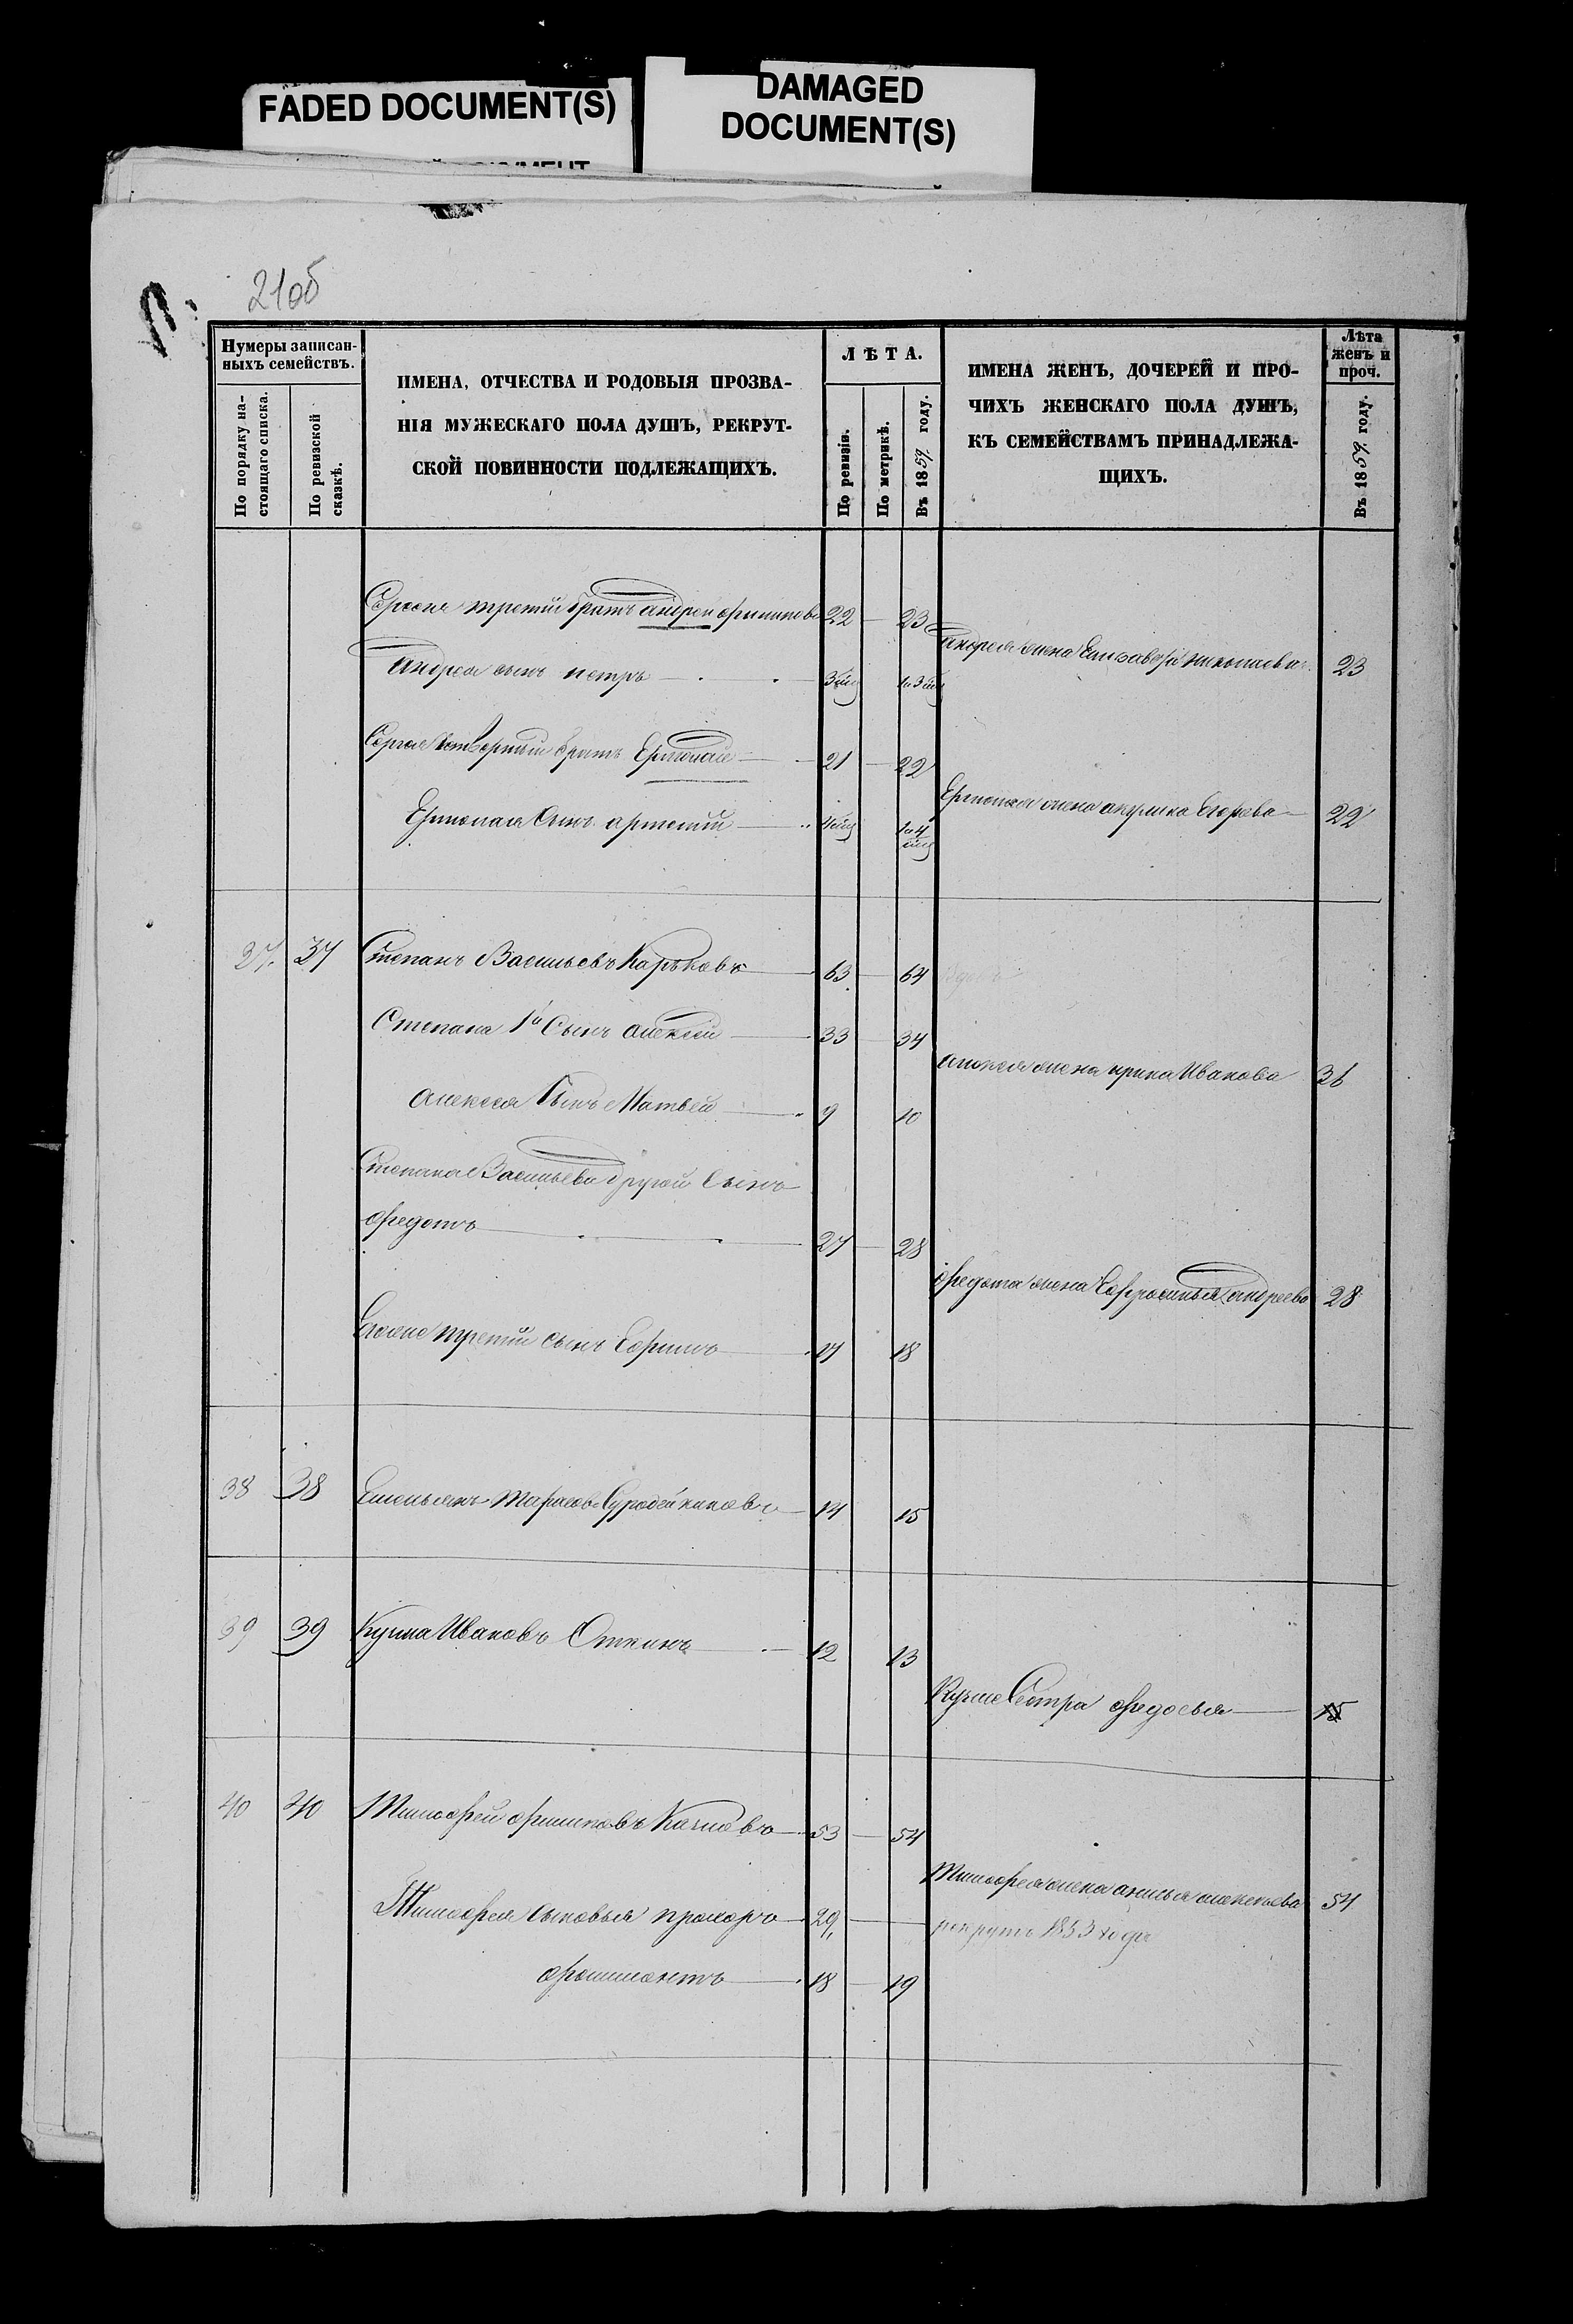 FADED DOCUMENT(S)
DAMAGED
DOCUMENT(S)
21об
Нумеры записан-
ныхъ семействъ.
По порядку на-
стоящаго списка.
По ревизской
сказкѣ.
ИМЕНА, ОТЧЕСТВА И РОДОВЫЯ ПРОЗВА-
НІЯ МУЖЕСКАГО ПОЛА ДУШЪ, РЕКРУТ-
СКОЙ ПОВИННОСТИ ПОДЛЕЖАЩИХЪ.
ЛѢТА.
По ревизіи.
По метрикѣ.
Въ 1859 году.
ИМЕНА ЖЕНЪ, ДОЧЕРЕЙ И ПРО-
ЧИХЪ ЖЕНСКАГО ПОЛА ДУШЪ,
КЪ СЕМЕЙСТВАМЪ ПРИНАДЛЕЖА-
ЩИХЪ.
Лѣта
женъ и
проч.
Въ 1859 году.
третій братъ андрей филиповъ 22 23
андрея жена Елизавета николаева 23
андрея сынъ петръ 3 мѣс 1 3 мѣс
Сергея четвертый братъ Ермолай 21 22
Ермолая жена акулина Егорова 22
Ермолая Сынъ артемій 4 мѣс 1 4 мѣс
37. 37 Степанъ Васильевъ Карьковъ 63 64
Степана 1й Сынъ алексей 33 34
алексея жена ирина Иванова 36
алексея Сынъ Матвей 9 10
Степана Васильева другой Сынъ
федотъ 27 28
федота жена Евфросинья андреева 28
Егоже третій сынъ Ефимъ 17 18
38 38 Емельянъ Тарасовъ 14 15
39 39 Кузма Ивановъ Откинъ 12 13
Кузме Сестра федосья 15
40 40 Тимофей филиповъ 53 54
Тимофея жена анисья алексеева 54
Тимофея сыновья прохоръ 29,
рекрутъ 1853 года
18 19